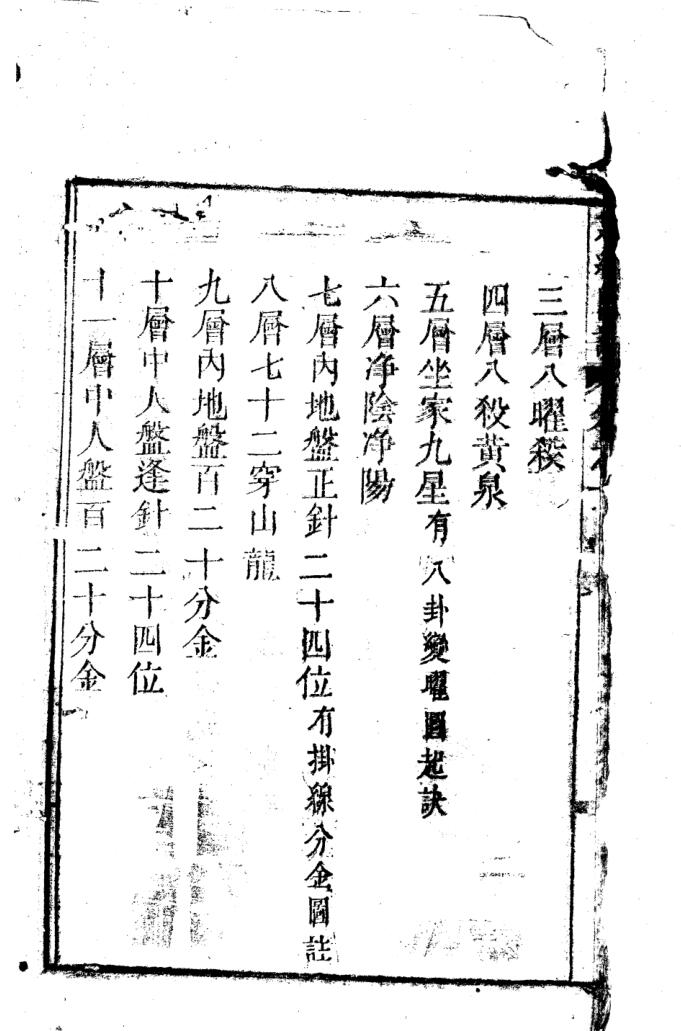 三層八曜殺
四層八殺黃泉
五層坐家九星有八卦變曜圖起訣
六層净陰净陽
七層內地盤正針二十四位有掛線分金圖註
八層七十二穿山龍
九層內地盤百二十分金
十層中人盤逢針二十四位
十一層中人盤百二十分金